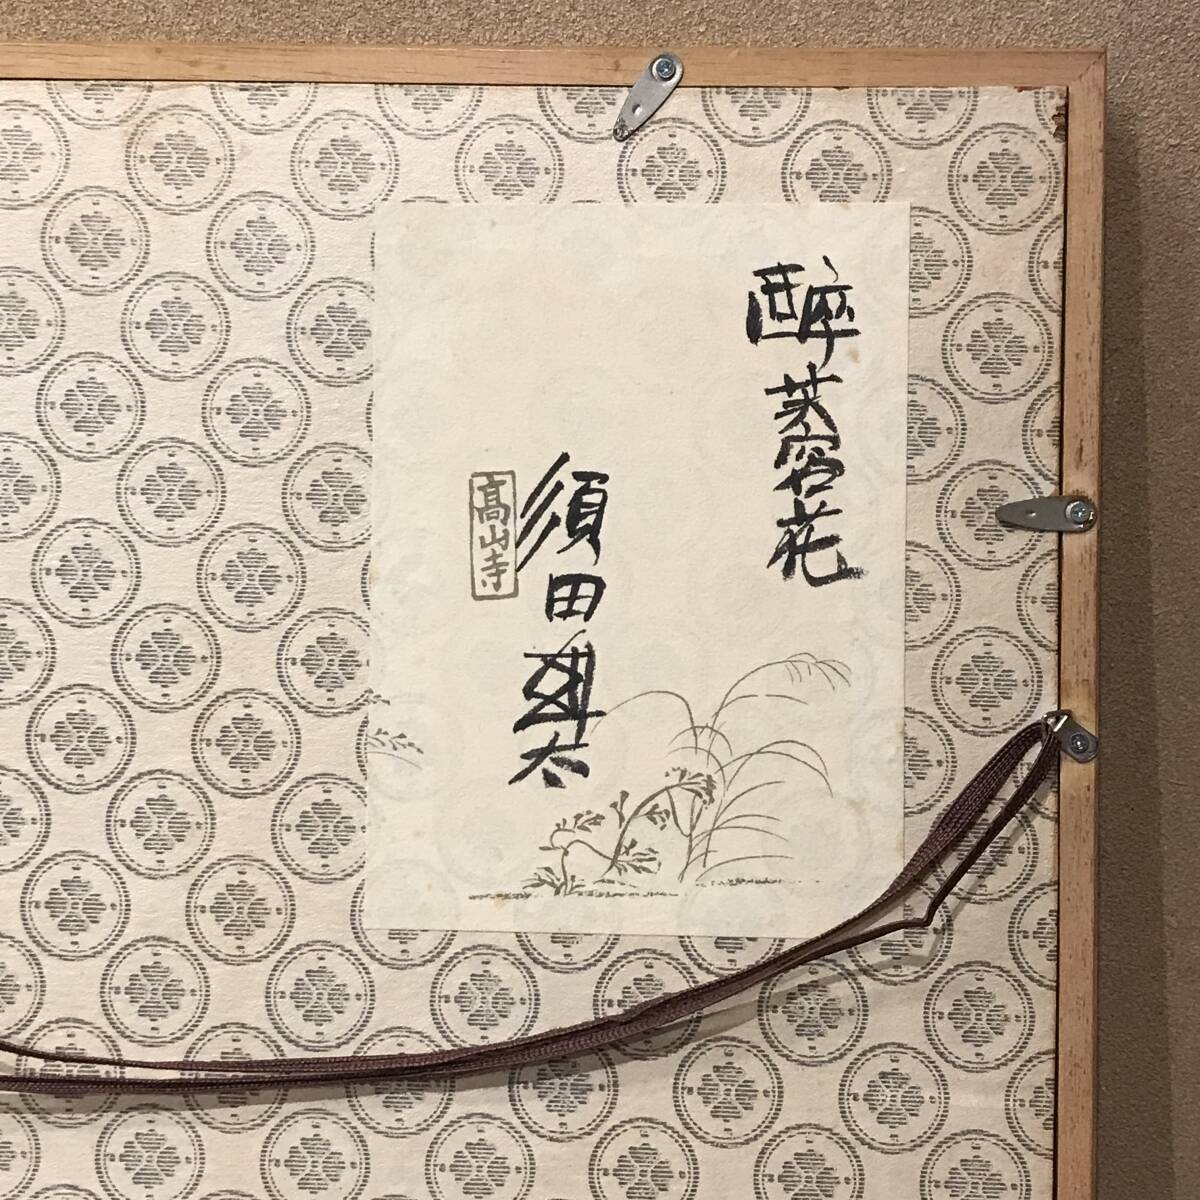 醉芙蓉花
須田剋太
高山寺